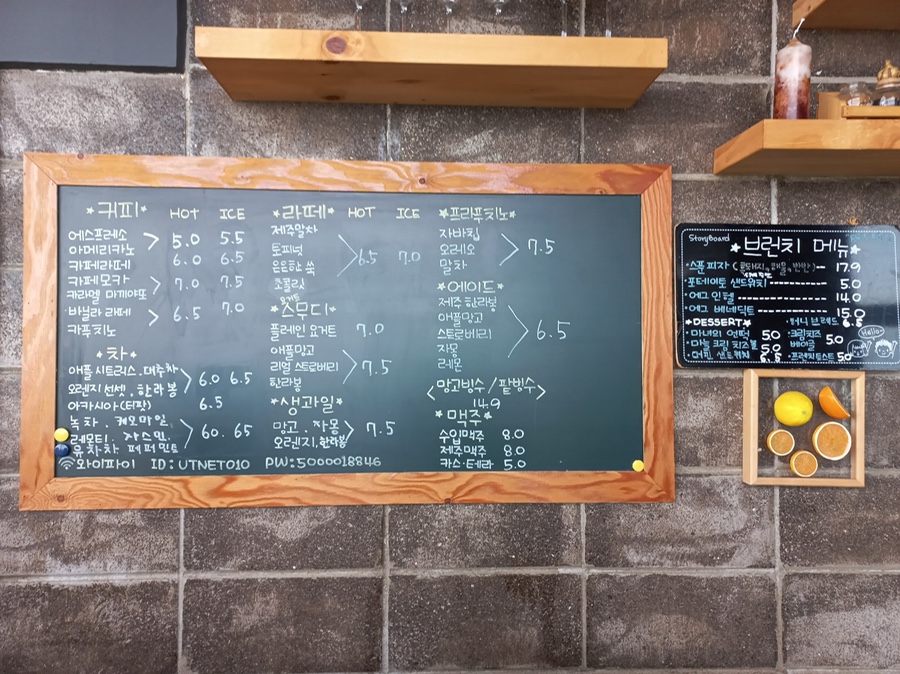 *커피* HOT ICE
에스프레소
아메리카노 5.0 5.5
카페라떼 6.0 6.5
카페모카
카라멜 마끼야또 7.0 7.5
·바닐라 라떼 6.5 7.0
카푸치노
*차*
애플 시트러스, 대추차
오렌지 선셋, 한라봉 6.0 6.5
아카시아(터팟) 6.5
녹차. 캐모마일
레몬티. 쟈스민. 60. 65
유자차 페퍼민트
와이파이 ID: UTNET010 PW: 5000018846
*라떼* HOT ICE
제주말차
토피넛 6.5 7.0
은은한 쑥
초콜릿
*스무디* 요거트
플레인 요거트 7.0
애플망고
리얼 스트로베리 7.5
한라봉
*생과일*
망고. 자몽 7.5
오렌지. 한라봉
*프라푸치노*
자바칩
오레오 7.5
말차
*에이드*
제주 한라봉
애플망고
스트로베리 6.5
자몽
레몬
<망고빙수/팥빙수>
14.9
*맥주*
수입맥주 8.0
제주맥주 8.0
카스·테라 5.0
StoryBoard
*브런치 메뉴*
·스푼 피자 17.9
·포테이토 샌드위치 5.0
·에그 인 헬 14.0
·에그 베네딕트 15.0
*DESSERT* ·허니 브레드 6.5
·마녀의 연퍽 5.0
·마늘 크림 치즈볼 5.0
·머핀 샌드위치 6.5
·크림치즈
베이글 5.0
·프렌치토스트 5.0
Hello~